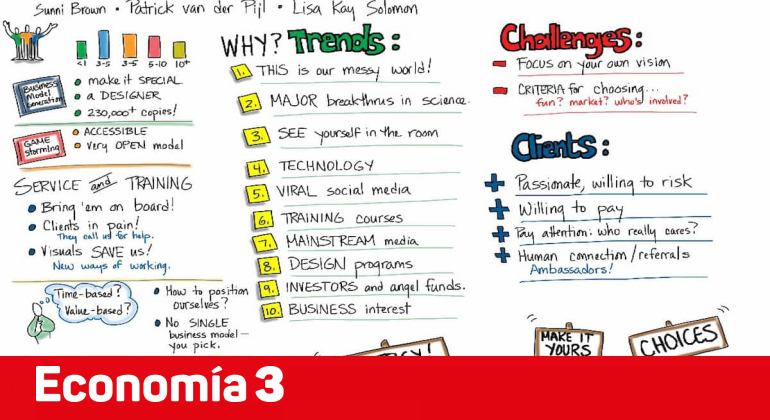 Sunni Brown • Patrick van der Pijl • Lisa Kay Solomon
<1 3-5 3-5 5-10 10+
Business Model Generation
make it SPECIAL
a DESIGNER
230,000+ copies!
GAME storming
ACCESSIBLE
Very OPEN model
SERVICE and TRAINING
Bring 'em on board!
Clients in pain!
They call us for help.
Visuals SAVE us!
New ways of working.
Time-based?
Value-based?
How to position
ourselves?
No SINGLE
business model—
you pick.
WHY? Trends:
1. THIS is our messy world!
2. MAJOR breakthrus in science.
3. SEE yourself in the room
4. TECHNOLOGY
5. VIRAL social media
6. TRAINING courses
7. MAINSTREAM media
8. DESIGN programs
9. INVESTORS and angel funds.
10. BUSINESS interest
Challenges:
Focus on your own vision
CRITERIA for choosing...
fun? market? who's involved?
Clients:
Passionate, willing to risk
Willing to pay
Pay attention: who really cares?
Human connection/referrals
Ambassadors!
MAKE IT
YOURS
CHOICES
Economía 3